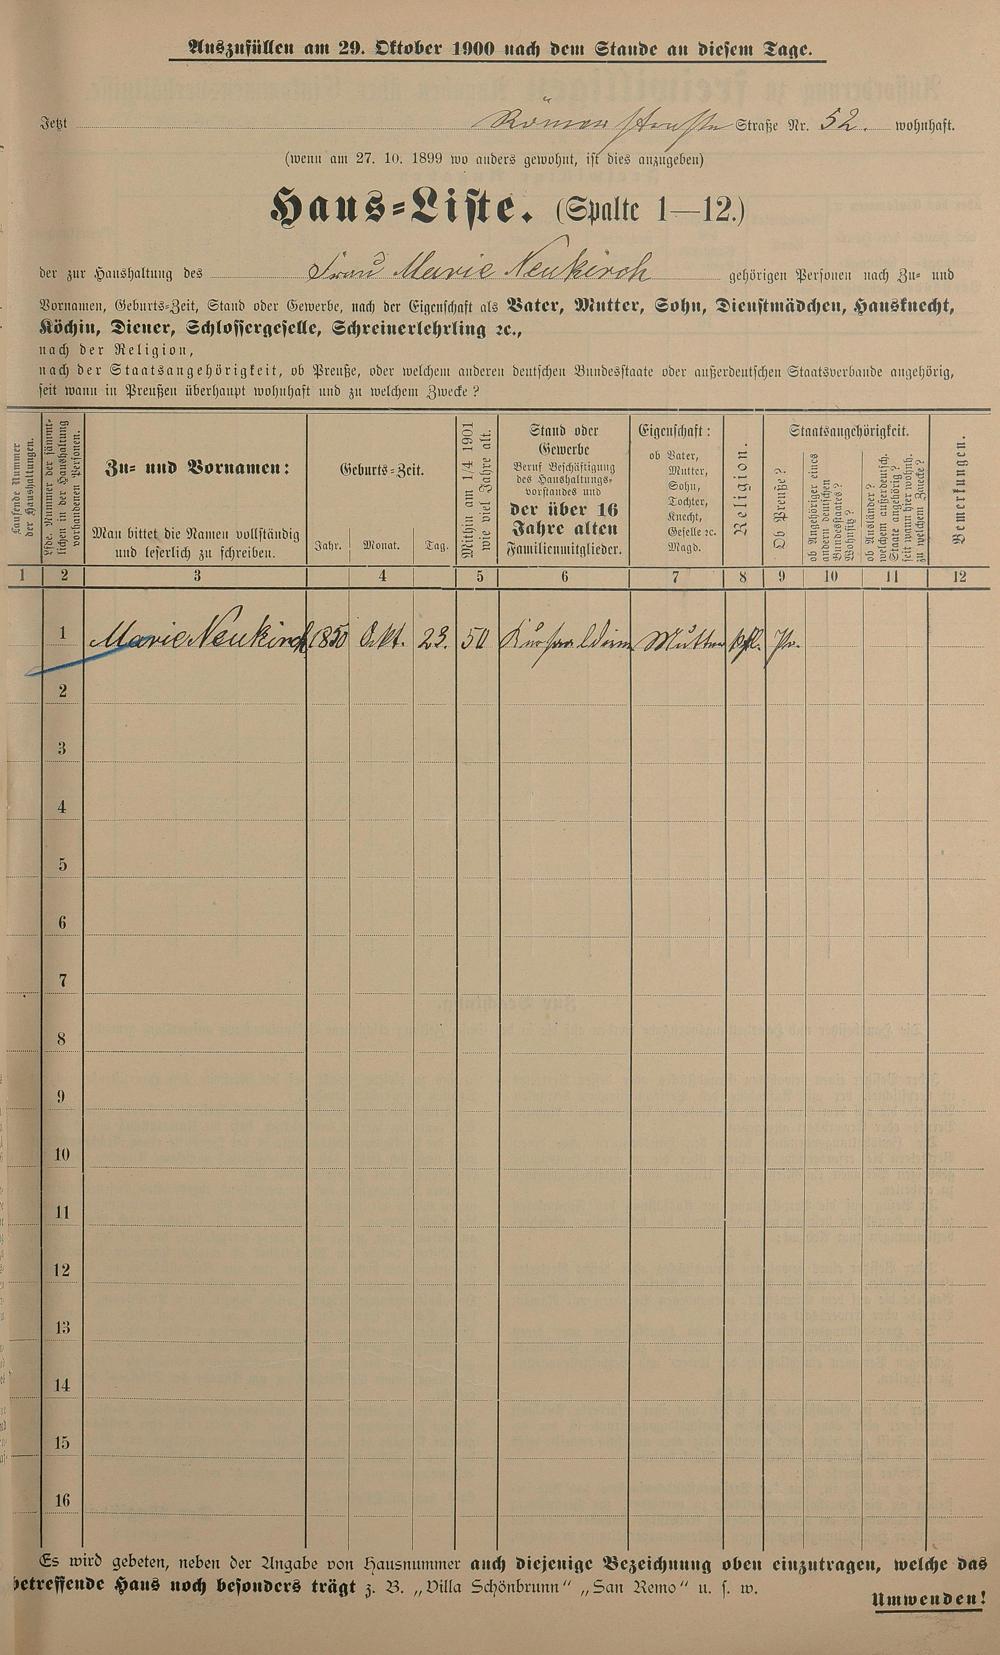 Auszufüllen am 29. Oktober 1900 nach dem Stande an diesem Tage.
Jetzt Römerstraße Straße Nr. 52. wohnhaft.
(wenn am 27. 10. 1899 wo anders gewohnt, ist dies anzugeben)
Haus-Liste. (Spalte 1—12.)
der zur Haushaltung des Frau Marie Neukirch gehörigen Personen nach Zu- und
Vornamen, Geburts-Zeit, Stand oder Gewerbe, nach der Eigenschaft als Vater, Mutter, Sohn, Dienstmädchen, Hausknecht,
Köchin, Diener, Schlossergeselle, Schreinerlehrling ꝛc.,
nach der Religion,
nach der Staatsangehörigkeit, ob Preuße, oder welchem anderen deutschen Bundesstaate oder außerdeutschen Staatsverbande angehörig,
seit wann in Preußen überhaupt wohnhaft und zu welchem Zwecke?
Laufende Nummer
der Haushaltungen.
Lfde. Nummer der sämmt-
lichen in der Haushaltung
vorhandenen Personen.
Zu- und Vornamen:
Man bittet die Namen vollständig
und leserlich zu schreiben.
Geburts-Zeit.
Jahr. Monat. Tag.
Mithin am 1/4 1901
wie viel Jahre alt.
Stand oder
Gewerbe
Beruf Beschäftigung
des Haushaltungs-
vorstandes und
der über 16
Jahre alten
Familienmitglieder.
Eigenschaft:
ob Vater,
Mutter,
Sohn,
Tochter,
Knecht,
Geselle ꝛc.
Magd.
Religion.
Staatsangehörigkeit.
Ob Preuße?
ob Angehöriger eines
andern deutschen
Bundesstaates?
Wohnsitz?
ob Ausländer?
welchem außerdeutsch.
Staate angehörig?
seit wann hier wohnh.
zu welchem Zwecke?
Bemerkungen.
1 2 3 4 5 6 7 8 9 10 11 12
1 Marie Neukirch 1850 Okt. 23. 50 Mutter Pr.
2
3
4
5
6
7
8
9
10
11
12
13
14
15
16
Es wird gebeten, neben der Angabe von Hausnummer auch diejenige Bezeichnung oben einzutragen, welche das
betreffende Haus noch besonders trägt z. B. „Villa Schönbrunn“ „San Remo“ u. s. w.
Umwenden!